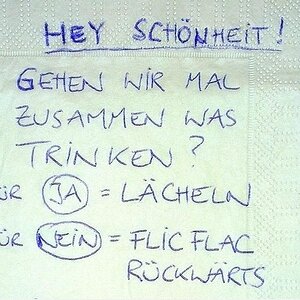 HEY SCHÖNHEIT!
GEHEN WIR MAL
ZUSAMMEN WAS
TRINKEN?
ÜR JA = LÄCHELN
ÜR NEIN = FLIC FLAC
RÜCKWÄRTS